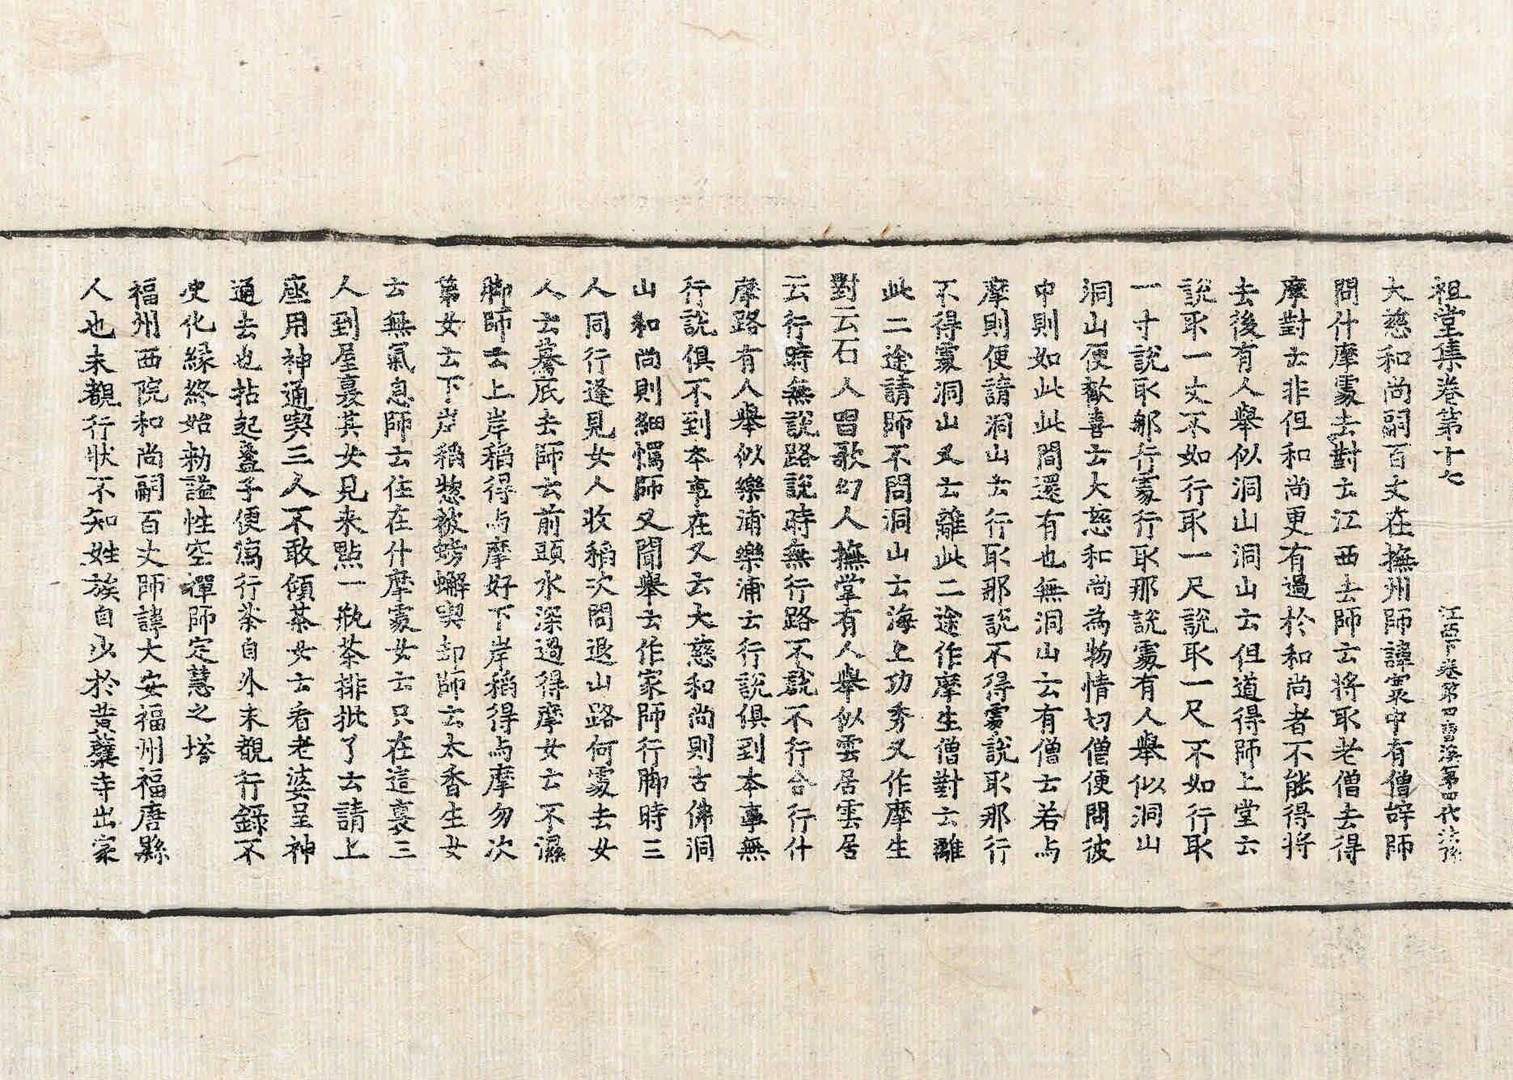 祖堂集卷第十七　江西下卷第四曺溪第四代法孫
大慈和尚嗣百丈在撫州師諱寰中有僧辝師
問什摩處去對云江西去師云將取老僧去得
摩對云非但和尚更有過於和尚者不能得將
去後有人舉似洞山洞山云但道得師上堂云
說取一丈不如行取一尺說取一尺不如行取
一寸說取那行處行取那說處有人舉似洞山
洞山便歡喜云大慈和尚為物情切僧便問彼
中則如此此間還有也無洞山云有僧云若与
摩則便請洞山云行取那說不得處說取那行
不得處洞山又云離此二途作摩生僧對云離
此二途請師不問洞山云海上功秀又作摩生
對云石人唱歌幻人撫堂有人舉似雲居雲居
云行時無說路說時無行路不說不行合行什
摩路有人舉似樂浦樂浦云行說俱到本事無
行說俱不到本事在又云大慈和尚則古佛洞
山和尚則細㦬師又聞舉云作家師行脚時三
人同行逢見女人收稻次問退山路何處去女
人云驀底去師云前頭水深過得摩女云不濕
脚師云上岸稻得与摩好下岸稻得与摩勿次
第女云下岸稻惣被螃蠏喫却師云太香生女
云無氣息師云住在什摩處女云只在這裏三
人到屋裏其女見来點一瓶茶排批了云請上
座用神通喫三人不敢傾茶女云看老婆呈神
通去也拈起盞子便瀉行茶自外未覩行錄不
史化緣終始勑謚性空禪師定慧之塔
福州西院和尚嗣百丈師諱大安福州福唐縣
人也未覩行狀不知姓族自少於黃蘗寺出家